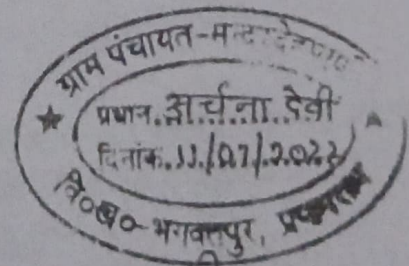 ग्राम पंचायत-
प्रधान. अर्चना देवी
दिनांक. 11/07/2023
वि०ख०-भगवतपुर, प्रयागराज